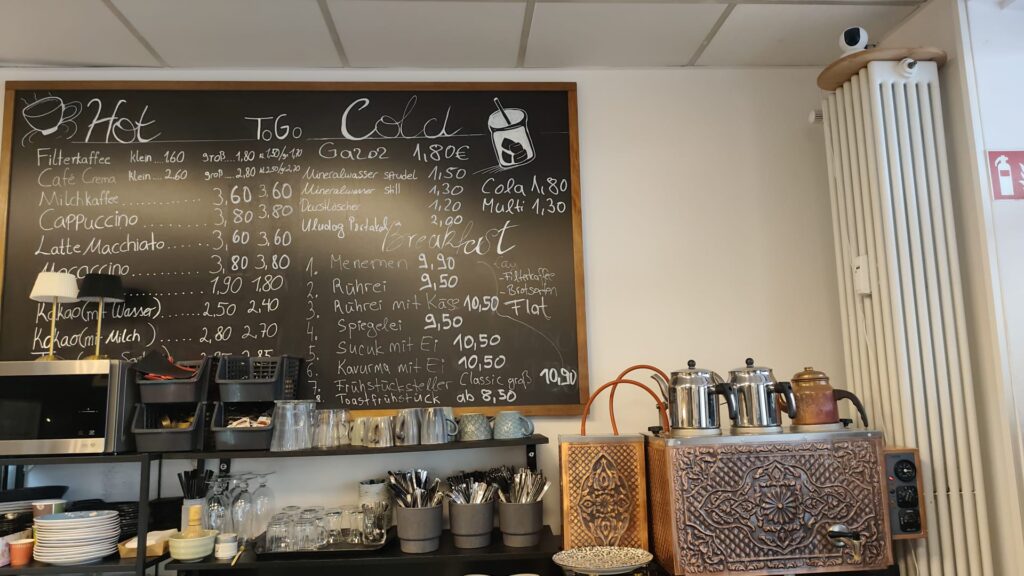 Hot ToGo
Filterkaffee klein... 1.60 groß... 1,80
Café Crema klein... 2.60 groß... 2.80
Milchkaffee 3,60 3.60
Cappuccino 3,80 3.80
Latte Macchiato 3,60 3,60
3,80 3,80
1.90 1.80
Kakao (mit Wasser) 2.50 2,40
Kakao (mit Milch) 2,80 2.70
Cold
Gazoz 1,80€
Mineralwasser 1,50
Mineralwasser still 1,30
Durstlöscher 1,20
Uludag 2,00
Cola 1,80
Multi 1,30
Breakfast
1. Menemen 9,90
2. Rührei 9,50
3. Rührei mit Käse 10,50
4. Spiegelei 9,50
5. Sucuk mit Ei 10,50
6. Kavurma mit Ei 10,50
Classic groß 10,90
Toastfrühstück ab 8,50
- Filterkaffee
Flat